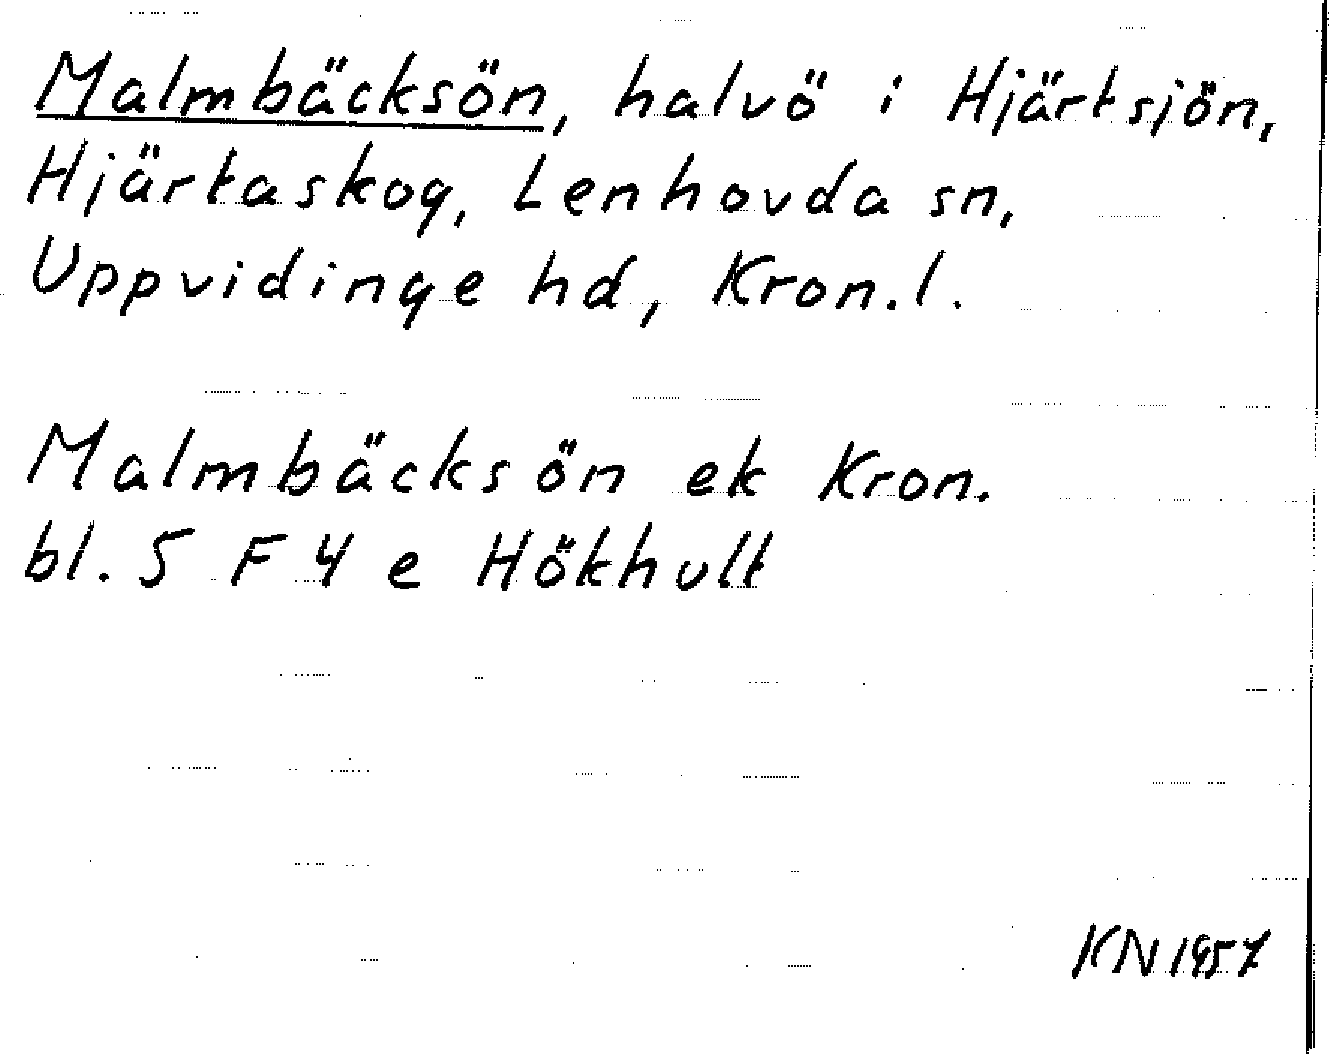 Malmbäcksön, halvö i Hjärtsjön,
Hjärtaskog, Lenhovda sn,
Uppvidinge hd, Kron.l.
Malmbäcksön ek Kron.
bl. 5 F 4 e Hökhult
KN 1957